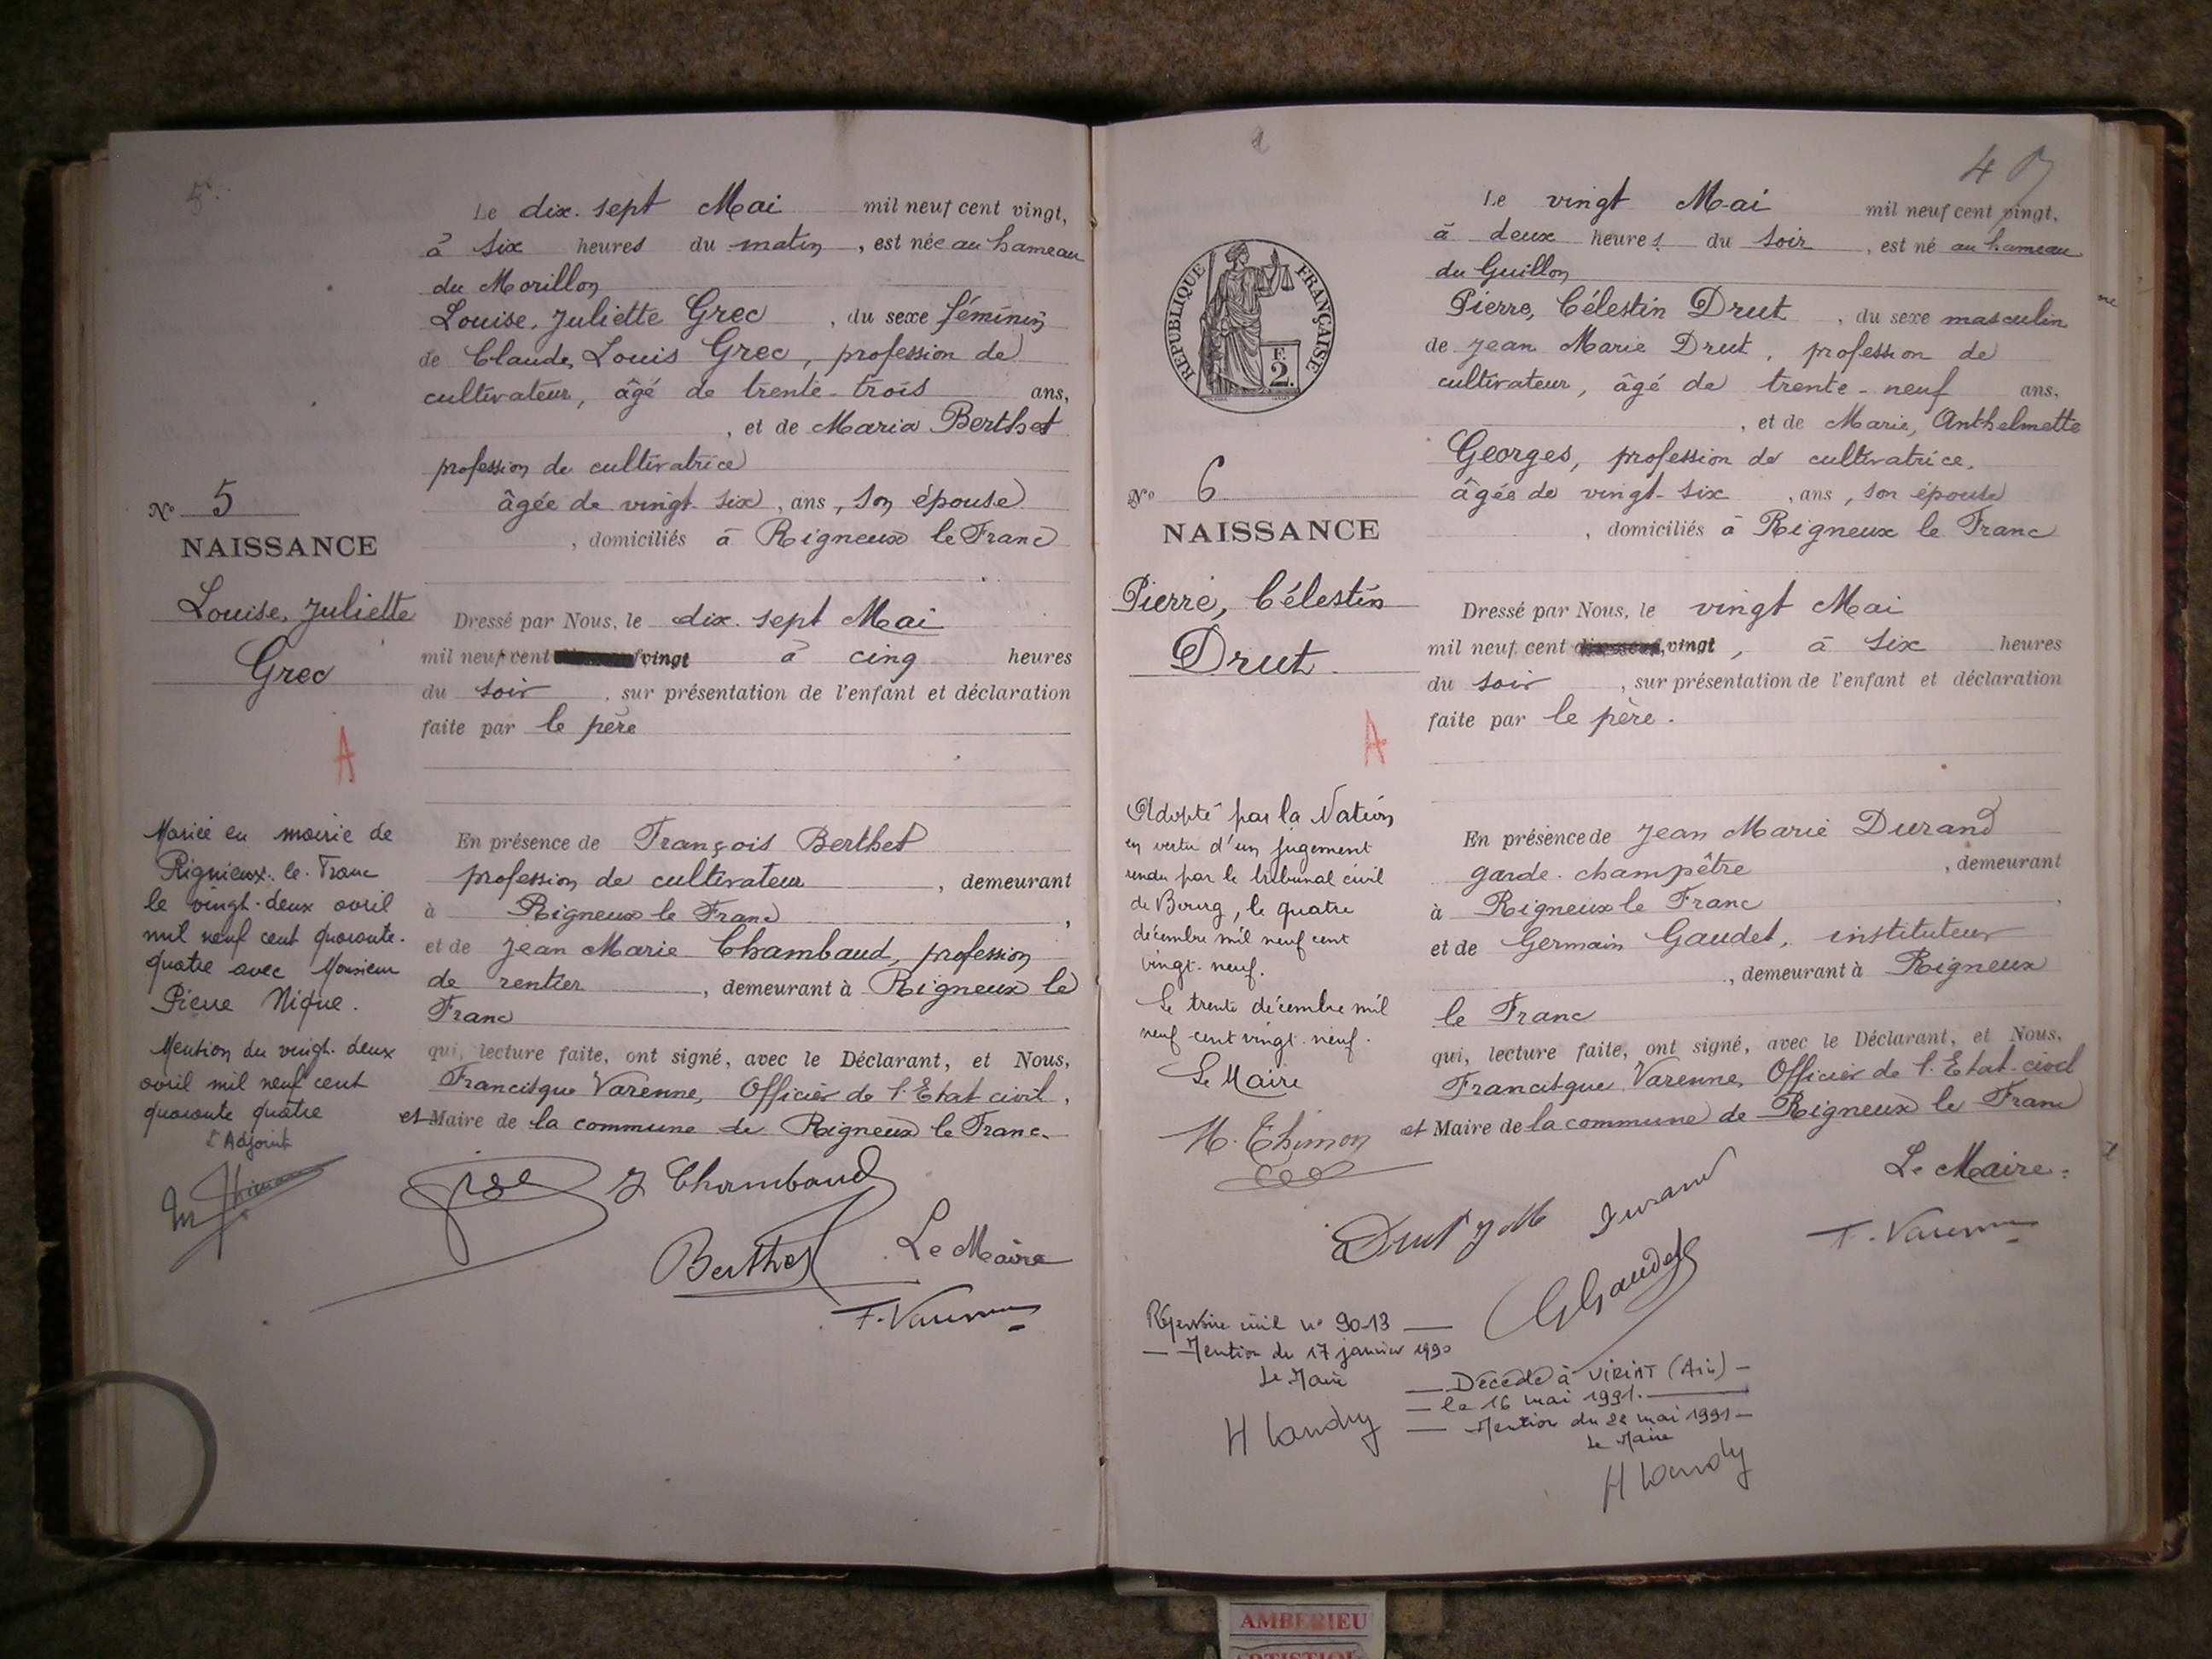 5
Le dix. sept Mai mil neuf cent vingt,
à six heures du matin, est née au hameau
du Morillon
Louise, Juliette Grec, du sexe féminin
de Claude, Louis Grec, profession de
cultivateur, âgé de trente-trois ans,
, et de Maria Berthet
profession de cultivatrice
âgée de vingt-six, ans, son épouse
, domiciliés à Rigneux le Franc
Nº 5
NAISSANCE
Louise, Juliette
Grec
Dressé par Nous, le dix. sept Mai
mil neuf cent vingt à cinq heures
du soir, sur présentation de l'enfant et déclaration
faite par le père
A
Mariée en mairie de
Rignieux. le. Franc
le vingt-deux avril
mil neuf cent quarante.
quatre avec Monsieur
Pierre Nique.
Mention du vingt-deux
avril mil neuf cent
quarante quatre
l'Adjoint
En présence de François Berthet
profession de cultivateur, demeurant
à Rigneux le Franc,
et de Jean Marie Chambaud, profession
de rentier, demeurant à Rigneux le
Franc
qui, lecture faite, ont signé, avec le Déclarant, et Nous,
Francisque Varenne, Officier de l'Etat civil,
et Maire de la commune de Rigneux le Franc.
J Chambaud
Berthet
Le Maire
F. Varenne
4
Le vingt Mai mil neuf cent vingt,
à deux heures du soir, est né au hameau
du Guillon
Pierre, Célestin Drut, du sexe masculin
de Jean Marie Drut, profession de
cultivateur, âgé de trente-neuf ans,
, et de Marie, Anthelmette
Georges, profession de cultivatrice.
âgée de vingt-six, ans, son épouse
, domiciliés à Rigneux le Franc
REPUBLIQUE FRANÇAISE
F.
2.
Nº 6
NAISSANCE
Pierre, Célestin
Drut
Dressé par Nous, le vingt Mai
mil neuf cent vingt, à six heures
du soir, sur présentation de l'enfant et déclaration
faite par le père.
A
Adopté par la Nation
en vertu d'un jugement
rendu par le tribunal civil
de Bourg, le quatre
décembre mil neuf cent
vingt-neuf.
Le trente décembre mil
neuf cent vingt-neuf.
Le Maire
En présence de Jean Marie Durand
garde-champêtre, demeurant
à Rigneux le Franc,
et de Germain Gaudet, instituteur
, demeurant à Rigneux
le Franc
qui, lecture faite, ont signé, avec le Déclarant, et Nous,
Francisque Varenne, Officier de l'Etat-civil
et Maire de la commune de Rigneux le Franc
Le Maire:
Drut J M
Durand
F. Varenne
G Gaudet
Répertoire civil nº 90-13
Mention du 17 janvier 1990
Le Maire
H Landry
Décédé à VIRIAT (Ain)
le 16 mai 1991.
Mention du 22 mai 1991
Le Maire
H Landry
AMBERIEU